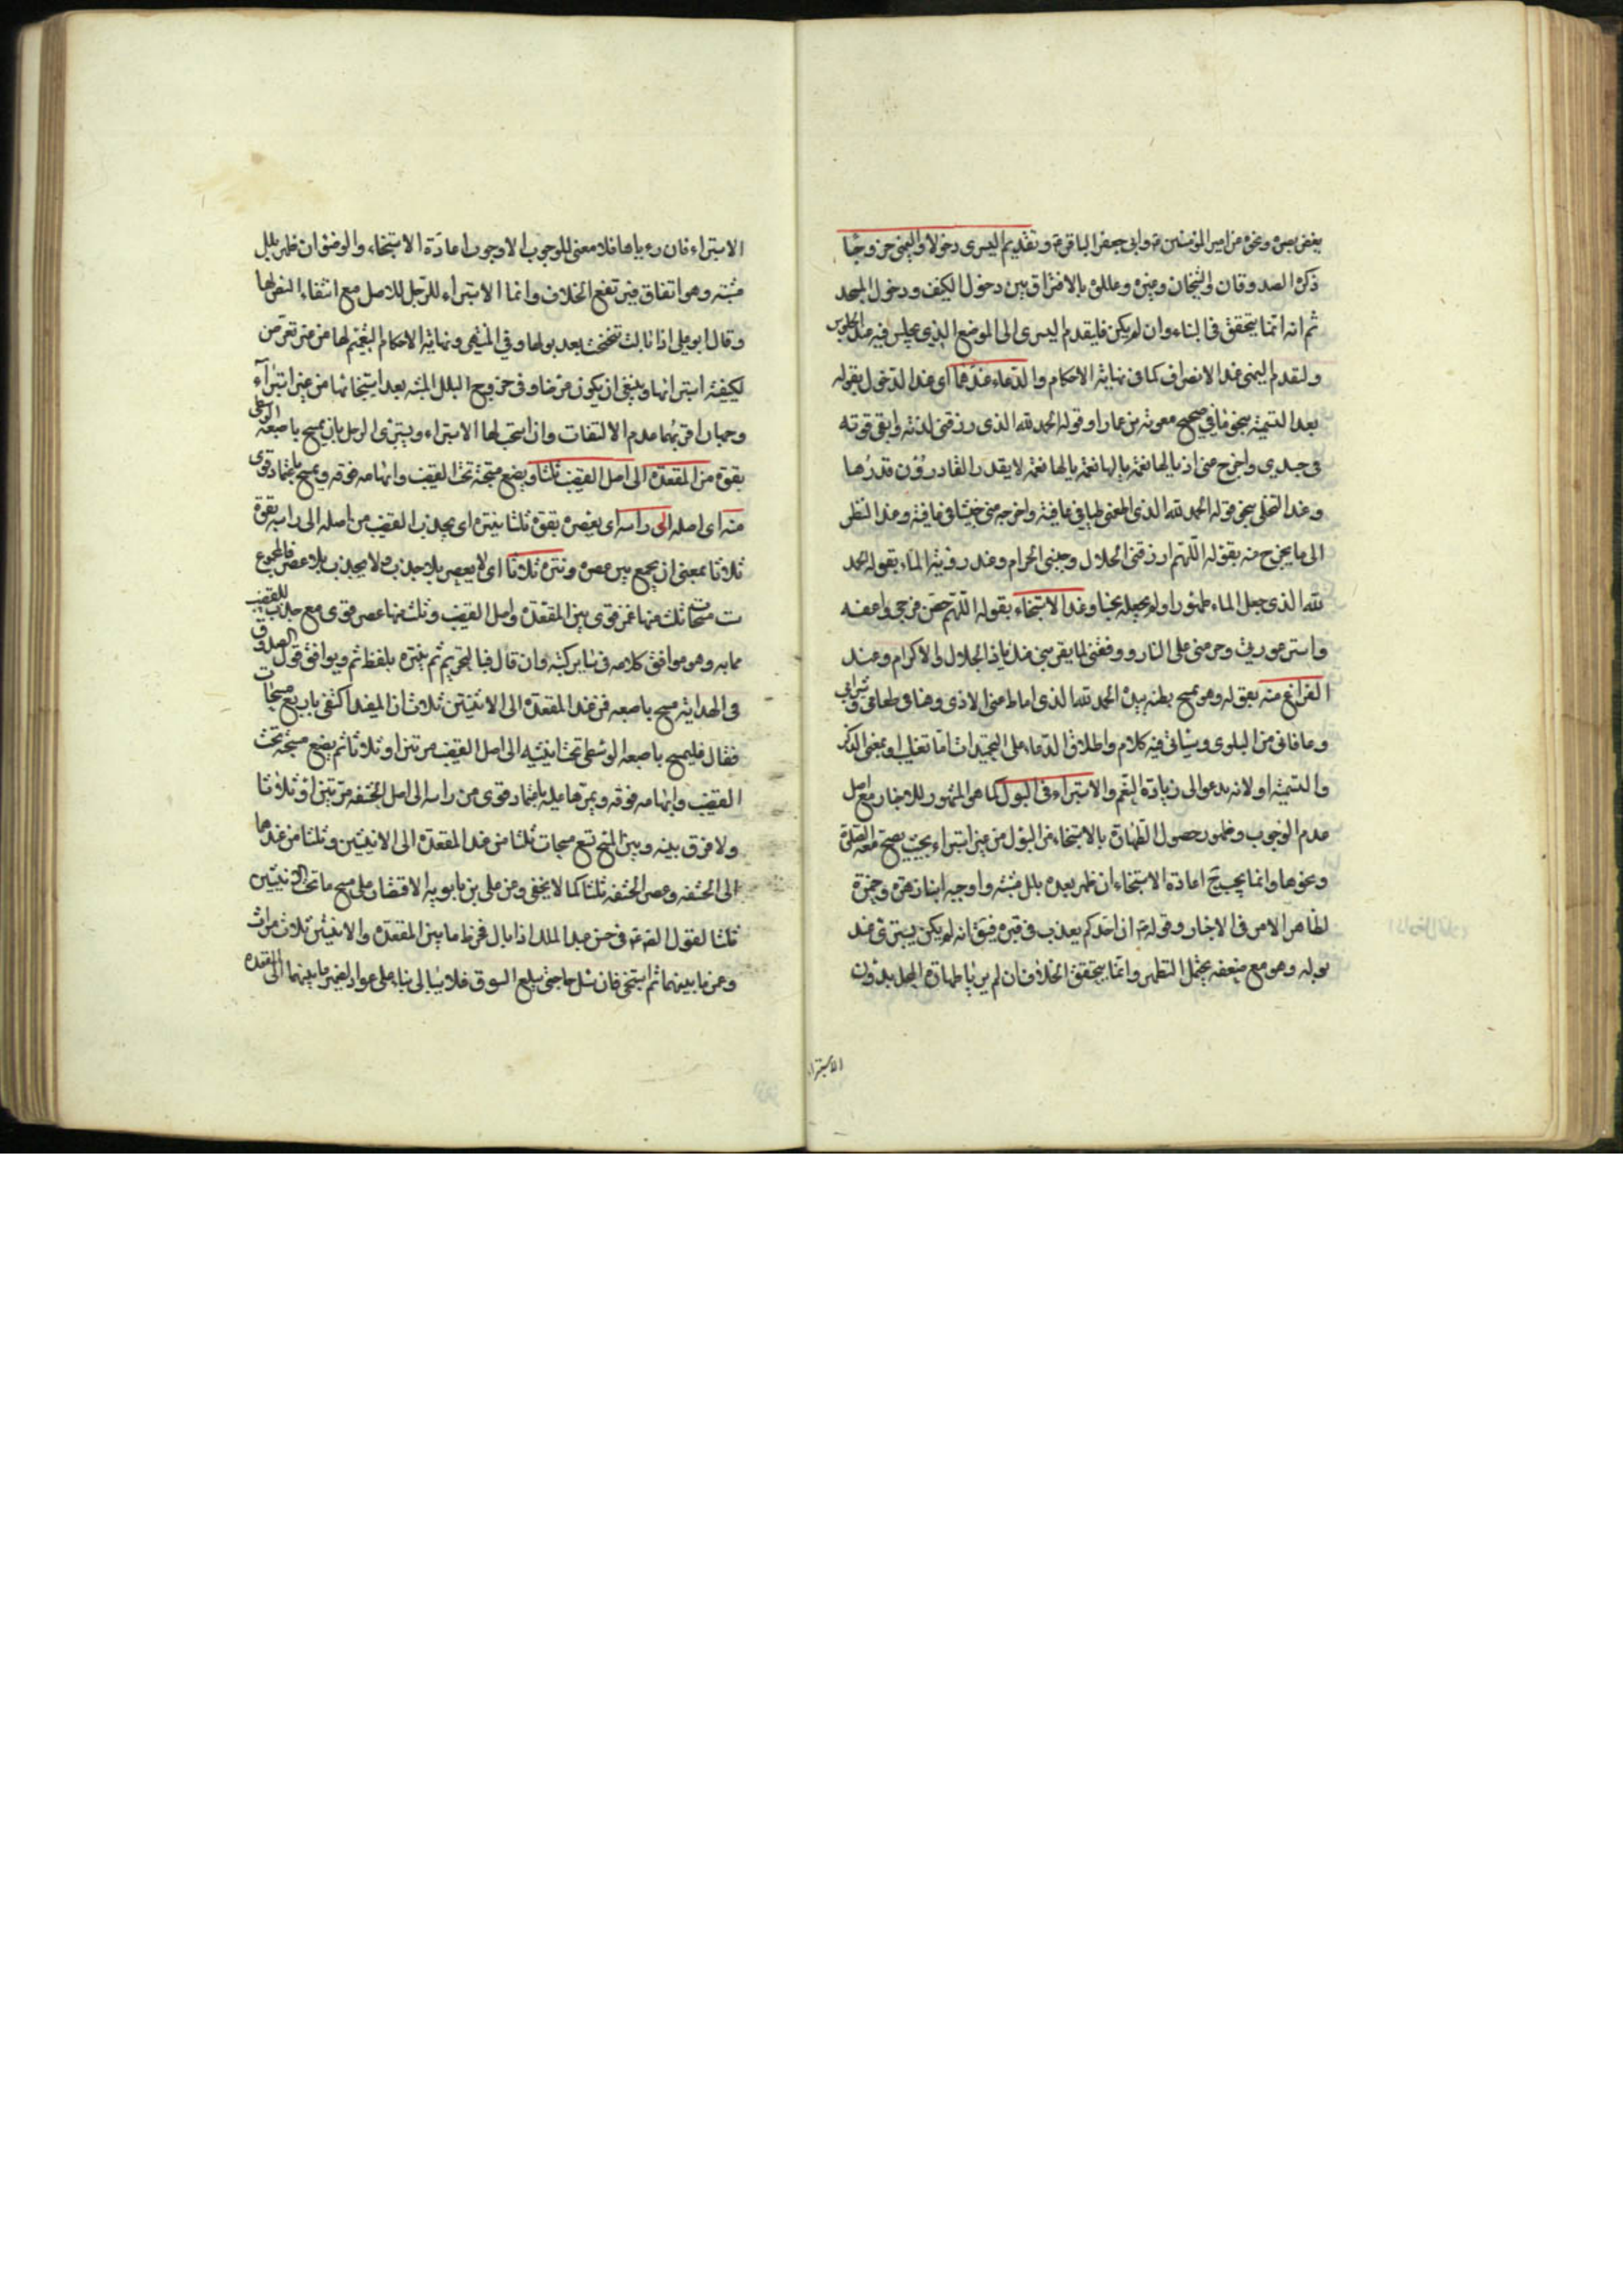 بغض بصره ونحوه عن امير المؤمنين ع وابى جعفر الباقر ع وتقديم اليسرى دخولا واليمنى خروجا
ذكره الصدوقان والشيخان وغيرهم وعللوه بالافتراق بين دخول الكنيف ودخول المسجد
ثم انه انما يتحقق فى البناء وان لم يكن فليقدم اليسرى الى الموضع الذي يجلس فيه عند الجلوس
وليقدم اليمنى عند الانصراف كما فى نهاية الاحكام والدعاء عندهما اى عند الدخول بقوله
بعد التسمية بنحو ما في صحيح معوية بن عمار او قوله الحمد لله الذى رزقنى لذته وابقى قوته
فى جسدي واخرج عنى اذيه يالها نعمة يالها نعمة يالها نعمة لا يقدر القادرون قدرها
وعند التخلى بنحو قوله الحمد لله الذى اطعمنى طيبا في عافية واخرجه منى خبيثا فى عافية وعند النظر
الى ما يخرج منه بقوله اللهم ارزقنى الحلال وجنبنى الحرام وعند رؤية الماء بقوله الحمد
لله الذى جعل الماء طهورا ولم يجعله نجسا وعند الاستنجاء بقوله اللهم حصن فرجى واعفه
واستر عورتى وحرمنى على النار ووفقنى لما يقربنى منك ياذا الجلال والاكرام وعند
الفراغ منه بقوله وهو يمسح بطنه بيده الحمد لله الذى اماط عنى الاذى وهنانى طعامى وشرابى
وعافانى من البلوى وسياتى فيه كلام واطلاق الدعاء على التحميدات اما تغليب او بمعنى الذكر
والتسمية او لانه يدعو الى زيادة النعم والاستبراء فى البول كما هو المشهور للاخبار مع اصل
عدم الوجوب وظهور حصول الطهارة بالاستنجاء من البول من غير استبراء بحيث يصح معه الصلوة
ونحوها وانما يجب ح اعادة الاستنجاء ان ظهر بعده بلل مشتبه واوجبه ابنا زهرة وحمزة
لظاهر الامر فى الاخبار وقوله ع ان احدكم يعذب فى قبره فيق انه لم يكن يستبرئ عند
بوله وهو مع ضعفه يحتمل التطهر وانما يتحقق الخلاف ان لم يريا طهارة المحل بدون
الاستبراء
الاستبراء فان رءياها فلا معنى للوجوب الا وجوب اعادة الاستنجاء والوضوء ان ظهر بلل
مشتبه وهو اتفاق فيرتفع الخلاف وانما الاستبراء للرجل للاصل مع انتفاء النص لها
وقال ابو على اذا بالت تنحنحت بعد بولها وفى المنتهى ونهاية الاحكام التعميم لها من غير تعرض
لكيفية استبرائها وينبغى ان يكون عرضا وفى خروج البلل المشتبه بعد استنجائها من غير استبراء
وجهان اقربهما عدم الالتفات وان استحب لها الاستبراء ويستبرئ الرجل بان يمسح باصبعه الوسطى
بقوة من المقعدة الى اصل القضيب ثلثا ويضع مسبحته تحت القضيب وابهامه فوقه ويمسح باعتماد قوى
منه اى اصله الى راسه اى يعصره بقوة ثلثا ينتره اى يجذب القضيب من اصله الى راسه بقوة
ثلاثا بمعنى ان يجمع بين عصره ونتره ثلاثا اى لا يعصر بلا جذب ولا يجذب بلا عصر فالمجموع
ست مسحات ثلث منها غمز قوى بين المقعدة واصل القضيب وثلث منها عصر قوى مع جذب للقضيب
مما به وهو موافق كلامه فى ساير كتبه وان قال فى التحرير ثم ينتره بلفظ ثم ويوافق قول الصدوق
فى الهداية مسح باصبعه من عند المقعدة الى الانثيين ثلاث ان المفيد اكتفى باربع مسحات
فقال فليمسح باصبعه الوسطى تحت انثييه الى اصل القضيب مرتين او ثلاثا ثم يضع مسبحته تحت
القضيب وابهامه فوقه ويمرهما عليه باعتماد قوى من راسه الى اصل الحشفه مرتين او ثلاثا
ولا فرق بينه وبين النتح تسع مسحات ثلثا من عند المقعدة الى الانثيين وثلثا من عندهما
الى الحشفه وعصر الحشفه ثلثا كما لا يخفى وعن على بن بابويه الاقتصار على مسح ما تحت الانثيين
ثلثا لقول الصادق ع فى حسن عبد الملك اذا بال فخرط ما بين المقعدة والانثيين ثلاث مرات
وغمز ما بينهما ثم استنجى فان سال حتى يبلغ السوق فلا يبالى بناء على عود ضمير ما بينهما الى المقعدة